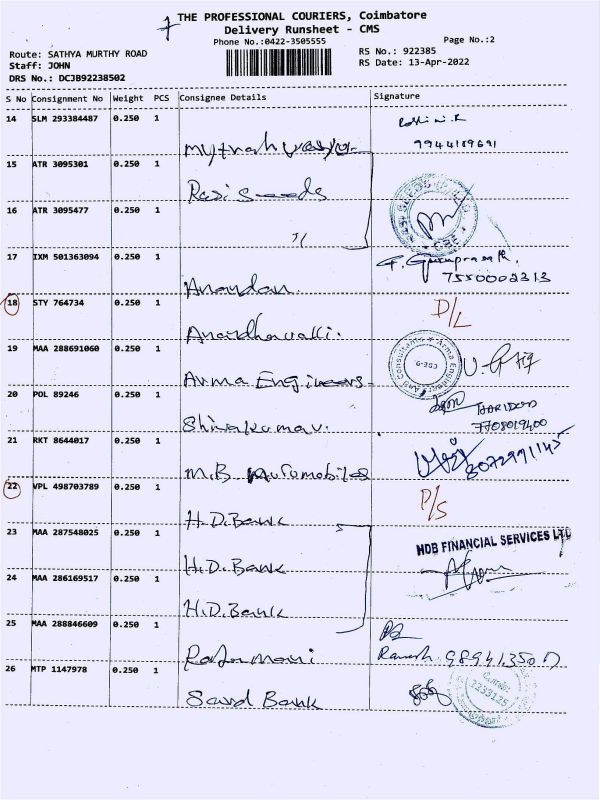 THE PROFESSIONAL COURIERS, Coimbatore
Delivery Runsheet - CMS
Phone No.:0422-3505555
Page No.:2
Route: SATHYA MURTHY ROAD
RS No.: 922385
Staff: JOHN
RS Date: 13-Apr-2022
DRS No.: DCJB92238502
S No Consignment No Weight PCS Consignee Details Signature
14 SLM 293384487 0.250 1
9944189691
15 ATR 3095301 0.250 1
Rasi seeds
16 ATR 3095477 0.250 1
"
17 IXM 501363094 0.250 1
G. Guruprasath.
7550002313
Anandan.
18 STY 764734 0.250 1
D/L
Anandhavalli.
19 MAA 288691060 0.250 1
And Consultants * Arma Engineers
G-303
Arma Engineers
20 POL 89246 0.250 1
HARIDOSS
7708019400
Shivakumar.
21 RKT 8644017 0.250 1
8072991145
M.B Automobiles
22 VPL 498703789 0.250 1
P/S
H.D.Bank
23 MAA 287548025 0.250 1
HDB FINANCIAL SERVICES LTD
H.D.Bank
24 MAA 286169517 0.250 1
H.D.Bank
25 MAA 288846609 0.250 1
Ramesh
Rajamani
26 MTP 1147978 0.250 1
2233125
Sard Bank